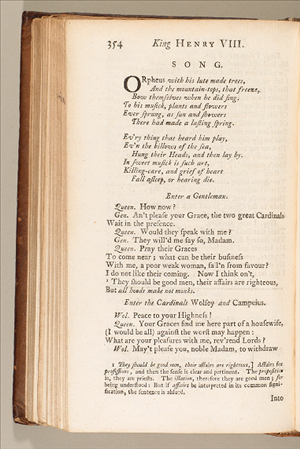 354 King HENRY VIII.
SONG.
ORpheus with his lute made trees,
And the mountain-tops, that freeze,
Bow themselves when he did sing,
To his musick, plants and flowers
Ever sprung, as sun and showers
There had made a lasting spring.
Ev'ry thing that heard him play,
Ev'n the billows of the sea,
Hung their Heads, and then lay by.
In sweet musick is such art,
Killing-care, and grief of heart
Fall asleep, or hearing die.
Enter a Gentleman.
Queen. How now?
Gen. An't please your Grace, the two great Cardinals
Wait in the presence.
Queen. Would they speak with me?
Gen. They will'd me say so, Madam.
Queen. Pray their Graces
To come near; what can be their business
With me, a poor weak woman, fal'n from favour?
I do not like their coming. Now I think on't,
1 They should be good men, their affairs are righteous,
But all hoods make not monks.
Enter the Cardinals Wolsey and Campeius.
Wol. Peace to your Highness!
Queen. Your Graces find me here part of a housewife,
(I would be all) against the worst may happen:
What are your pleasures with me, rev'rend Lords?
Wol. May't please you, noble Madam, to withdraw
1 They should be good men, their affairs are righteous,] Affairs for
professions; and then the sense is clear and pertinent. The proposition
is, they are priests. The illation, therefore they are good men; for
being understood: But if affairs be interpreted in its common signi-
fication, the sentence is absurd.
Into